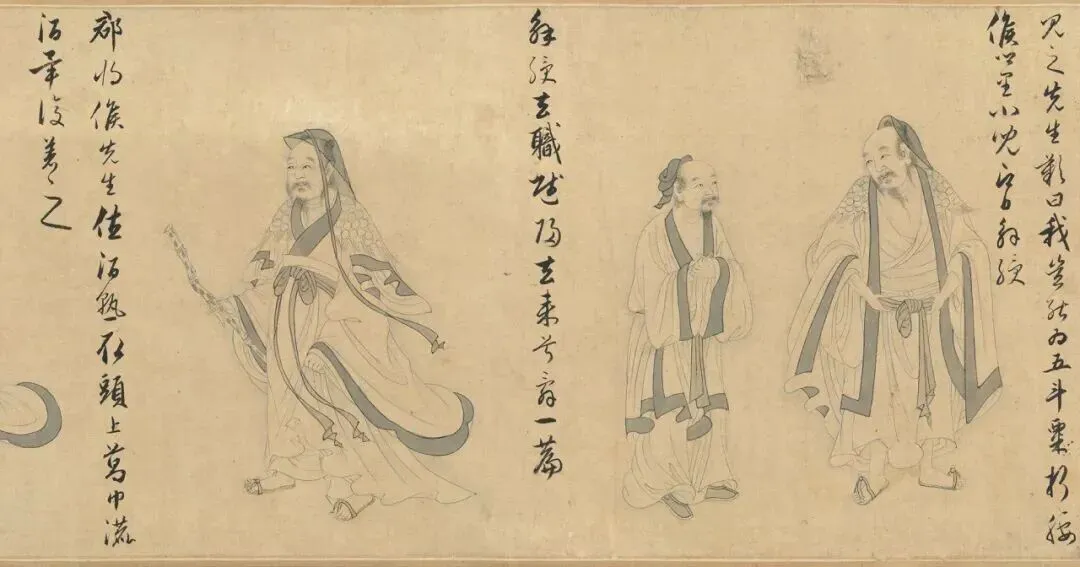 見之先生歎曰我豈能為五斗粟折腰
候鄉里小兒即日解綬
解綬去職賦歸去來兮辭一篇
郡將候先生值酒熟取頭上葛巾漉
酒畢復著之